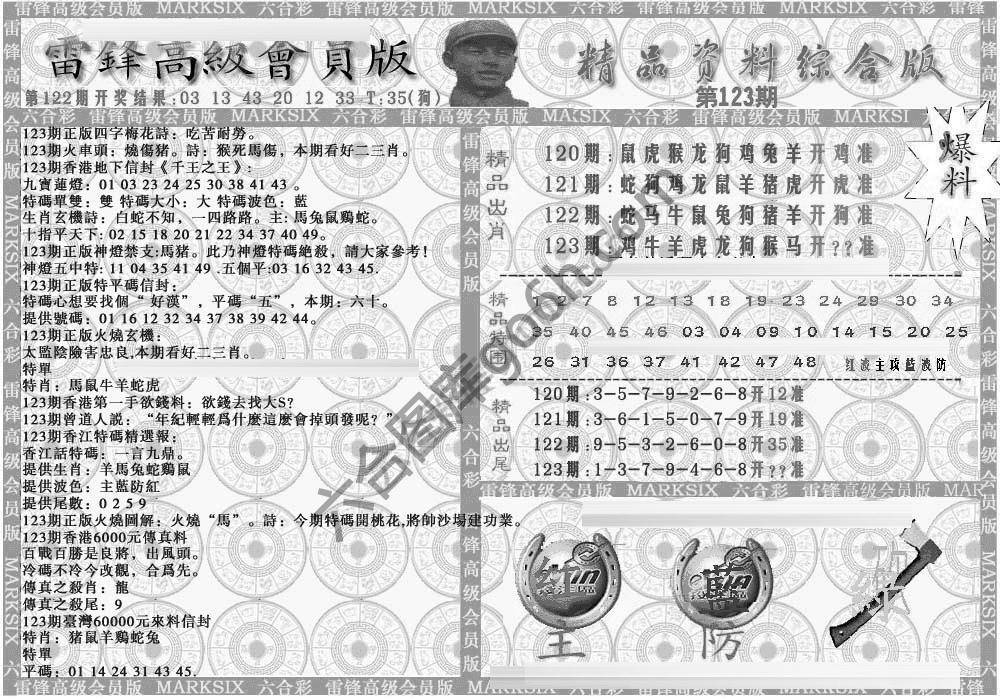 雷锋高级会员版 MARKSIX 六合彩 雷锋高级会员版 MARKSIX 六合彩 雷锋高级会员版 MARKSIX 六合彩 雷锋高级会员版
雷鋒高級會員版
第122期开奖结果:03 13 43 20 12 33-T:35(狗)
精品资料综合版
第123期
爆料
123期正版四字梅花詩：吃苦耐勞。
123期火車頭：燒傷豬。詩：猴死馬傷，本期看好二三肖。
123期香港地下信封《千王之王》:
九寶蓮燈：01 03 23 24 25 30 38 41 43 。
特碼單雙：雙 特碼大小：大 特碼波色：藍
生肖玄機詩：白蛇不知，一四路路。主：馬兔鼠鷄蛇。
十指平天下: 02 15 18 20 21 22 34 37 40 49.
123期正版神燈禁支:馬豬。此乃神燈特碼絶殺，請大家參考!
神燈五中特: 11 04 35 41 49 .五個平:03 16 32 43 45.
123期正版特平碼信封:
特碼心想要找個“好漢”，平碼“五”，本期：六十。
提供號碼：01 16 12 32 34 37 38 39 42 44。
123期正版火燒玄機：
太監陰險害忠良,本期看好二三肖。
特單
特肖：馬鼠牛羊蛇虎
123期香港第一手欲錢料：欲錢去找大S?
123期曾道人説：“年紀輕輕爲什麼這麼會掉頭發呢？”
123期香江特碼精選報：
香江話特碼：一言九鼎。
提供生肖：羊馬兔蛇鷄鼠
提供波色：主藍防紅
提供尾數：0 2 5 9
123期正版火燒圖解：火燒“馬”。詩：今期特碼開桃花,將帥沙場建功業。
123期香港6000元傳真料
百戰百勝是良將，出風頭。
冷碼不冷今改觀，合爲先。
傳真之殺肖：龍
傳真之殺尾：9
123期臺灣60000元來料信封
特肖：豬鼠羊鷄蛇兔
特單
平碼：01 14 24 31 43 45.
精品出肖
120期:鼠虎猴龙狗鸡兔羊开鸡准
121期:蛇狗鸡龙鼠羊猪虎开虎准
122期:蛇马牛鼠兔狗猪羊开狗准
123期:鸡牛羊虎龙狗猴马开??准
精品特围
1 2 7 8 12 13 18 19 23 24 29 30 34
35 40 45 46 03 04 09 10 14 15 20 25
26 31 36 37 41 42 47 48 红波主攻蓝波防
精品出尾
120期:3-5-7-9-2-6-8开12准
121期:3-6-1-5-0-7-9开19准
122期:9-5-3-2-6-0-8开35准
123期:1-3-7-9-4-6-8开??准
雷锋高级会员版 MARKSIX 六合彩 雷锋高级会员版
紅
主
藍
防
六合图库906h.com
雷锋高级会员版 MARKSIX 六合彩 雷锋高级会员版 MARKSIX 六合彩 雷锋高级会员版 MARKSIX 六合彩 雷锋高级会员版